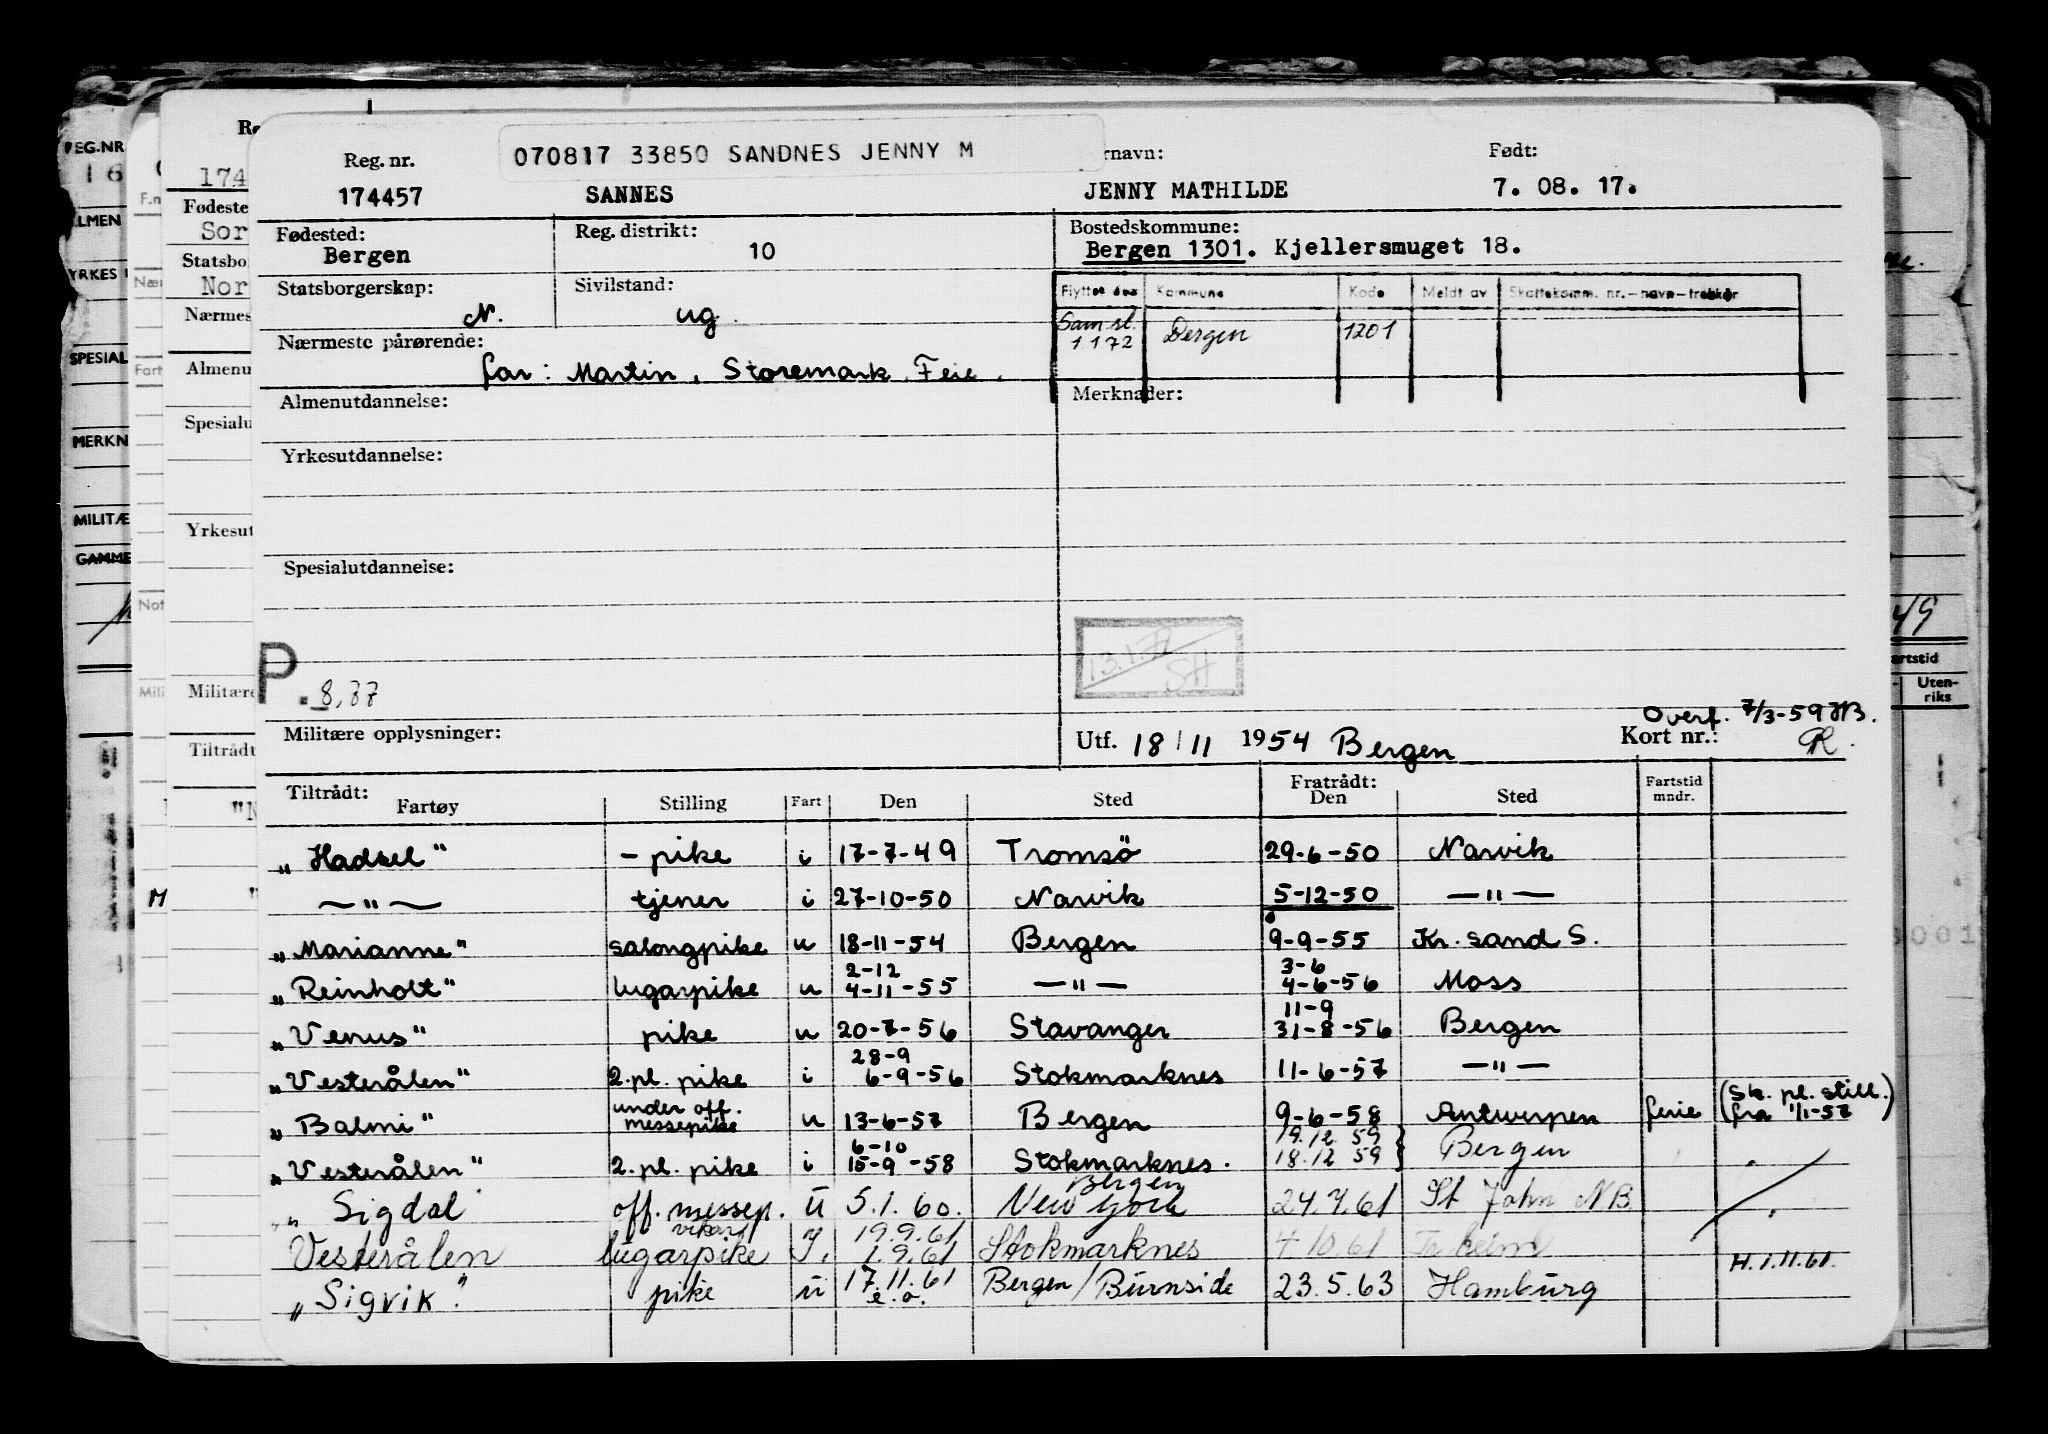 070817 33850 SANDNES JENNY M
Reg. nr.
rnavn:
Født:
174457 SANNES JENNY MATHILDE 7. 08. 17.
Fødested: Bergen
Reg. distrikt: 10
Bostedskommune:
Bergen 1301. Kjellersmuget 18.
Statsborgerskap: N.
Sivilstand: ug.
Flyttet dato Kommune Kode Meldt av Skattekomm. nr.–navn–trekkår
Sam st. 1 1 72 Bergen 1201
Nærmeste pårørende:
far: Martin, Storemark, Feie.
Almenutdannelse:
Merknader:
Yrkesutdannelse:
Spesialutdannelse:
P. 8,37
SH
Overf. 7/3-59 HB.
Militære opplysninger:
Utf. 18/11 1954 Bergen
Kort nr.:
Tiltrådt: Fratrådt:
Fartøy Stilling Fart Den Sted Den Sted Fartstid mndr.
"Hadsel" – pike i 17-7-49 Tromsö 29-6-50 Narvik
—"— tjener i 27-10-50 Narvik 5-12-50 —"—
"Marianne" salongpike u 18-11-54 Bergen 9-9-55 Kr. sand S.
2-12 3-6
"Reinholt" lugarpike u 4-11-55 —"— 4-6-56 Moss
11-9
"Venus" pike u 20-7-56 Stavanger 31-8-56 Bergen
28-9
"Vesterålen" 2. pl. pike i 6-9-56 Stokmarknes 11-6-57 —"—
"Balmi" under off. messepike u 13-6-57 Bergen 9-6-58 Antwerpen ferie (Sk. pl. still. fra 1/1-57)
6-10 19.12 59
"Vesterålen" 2. pl. pike i 15-9-58 Stokmarknes. 18.12 59 } Bergen
Bergen
"Sigdal" off. messep. u 5.1.60. New York 24.7.61 St John NB
vikar 19.9.61
Vesterålen lugarpike I. 1.9.61 Stokmarknes 4.10.61
H. 1.11.61.
"Sigvik" pike u 17.11.61 Bergen/Burnside 23.5.63 Hamburg
e.o.
REG.NR
16
174
Fødeste
Sor
Statsbo
Nor
Nærmes
Almenu
Spesialu
Yrkesut
Militære
Tiltrådt
YRKES
SPESIAL
MERKN
MILITÆ
GAMME
49
artstid
Uten-
riks